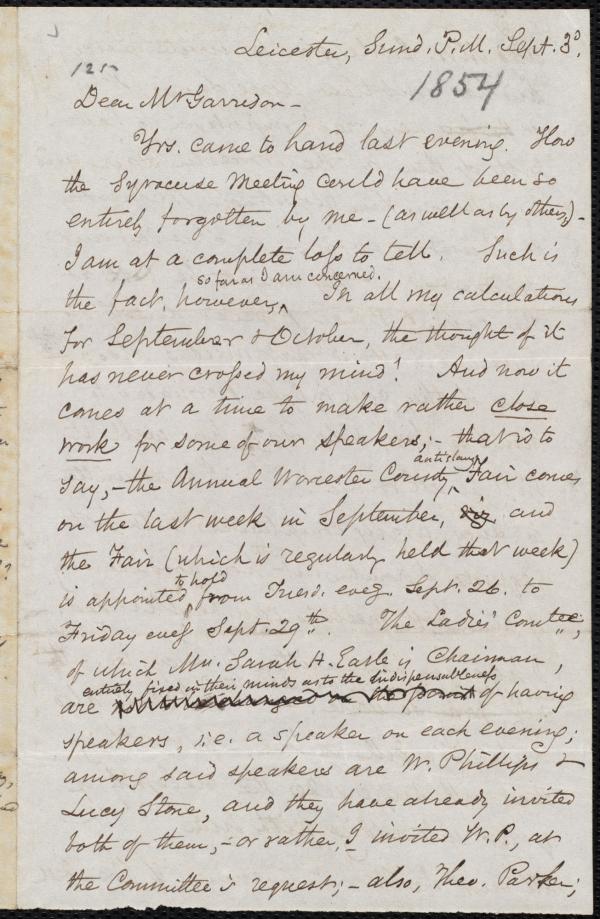 Leicester, Sund. P.M. Sept. 3d.
1854
Dear Mr Garrison -
Yrs. came to hand last evening. How
the Syracuse Meeting could have been so
entirely forgotten by me - (as well as by others,) -
I am at a complete loss to tell. Such is
so far as I am concerned.
the fact, however,^ In all my calculations
for September & October, the thought of it
has never crossed my mind! And now it
comes at a time to make rather close
work for some of our speakers; - that is to
antislavy
say, - the Annual Worcester County ^ Fair comes
on the last week in September, viz and
the Fair (which is regularly held that week)
to hold
is appointed ^ from Tuesd. eveg. Sept. 26. to
Friday eveg Sept. 29th. The Ladies' Comtee,
of which Mrs. Sarah H. Earle is Chairman,
entirely fixed in their minds as to the indispensableness
are of having
speakers, i.e. a speaker on each evening;
among said speakers are W. Phillips &
Lucy Stone, and they have already invited
both of them, - or rather, I invited W.P., at
the Committee's request; - also, Theo. Parker;